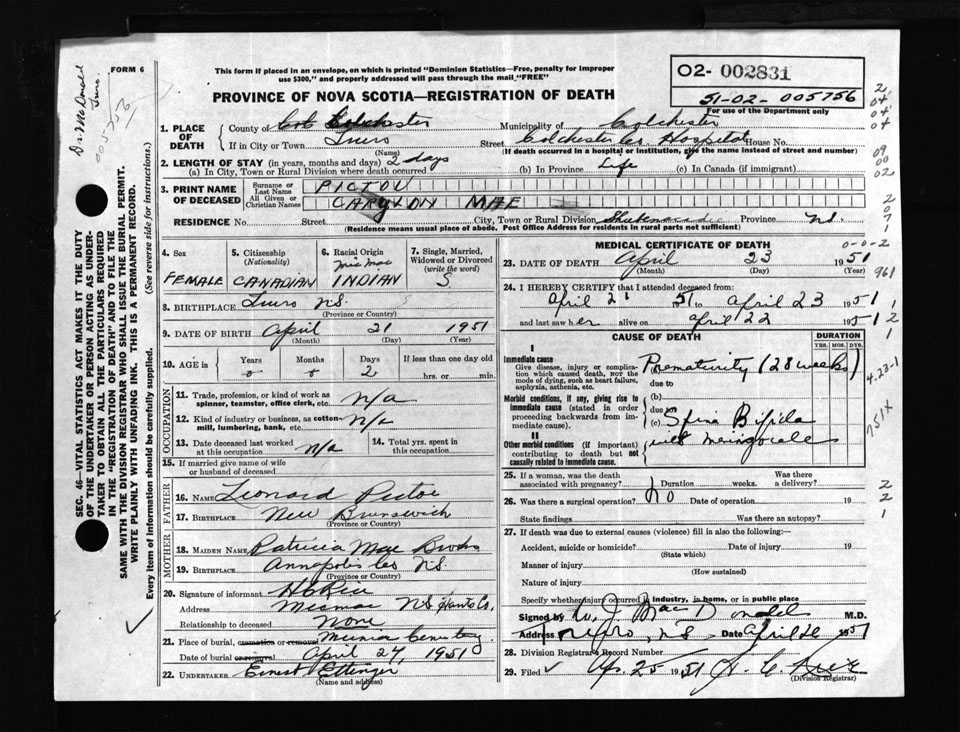 FORM 6
This form if placed in an envelope, on which is printed "Dominion Statistics—Free, penalty for improper
use $300," and properly addressed will pass through the mail "FREE"
PROVINCE OF NOVA SCOTIA—REGISTRATION OF DEATH
O2- 002831
51-02-005756
For use of the Department only
1. PLACE OF DEATH
County of Colchester
Municipality of Colchester
If in City or Town Truro
(Name)
Street Colchester Co. Hospital House No.
(If death occurred in a hospital or institution, give the name instead of street and number)
2. LENGTH OF STAY (in years, months and days) 2 days
(a) In City, Town or Rural Division where death occurred
(b) In Province Life
(c) In Canada (if immigrant)
3. PRINT NAME OF DECEASED
Surname or Last Name PICTOU
All Given or Christian Names CAROLYN MAE
RESIDENCE No. Street City, Town or Rural Division Shubenacadie Province N.S.
(Residence means usual place of abode. Post Office Address for residents in rural parts not sufficient)
4. Sex
FEMALE
5. Citizenship
(Nationality)
CANADIAN
6. Racial Origin
Mic Mac
INDIAN
7. Single, Married,
Widowed or Divorced
(write the word)
S
8. BIRTHPLACE Truro N.S.
(Province or Country)
9. DATE OF BIRTH April 21 1951
(Month) (Day) (Year)
10. AGE in
Years Months Days If less than one day old
0 0 2 hrs. or min.
OCCUPATION
11. Trade, profession, or kind of work as
spinner, teamster, office clerk, etc. N/A
12. Kind of industry or business, as cotton-
mill, lumbering, bank, etc. N/A
13. Date deceased last worked
at this occupation N/A
14. Total yrs. spent in
this occupation
15. If married give name of wife
or husband of deceased
FATHER
16. NAME Leonard Pictou
17. BIRTHPLACE New Brunswick
(Province or Country)
MOTHER
18. MAIDEN NAME Patricia Mae Brooks
19. BIRTHPLACE Annapolis Co N.S.
(Province or Country)
20. Signature of informant H C Rice
Address Micmac N.S. Hants Co.
Relationship to deceased None
21. Place of burial, cremation or removal Micmac Cemetery
Date of burial or removal April 24, 1951
22. UNDERTAKER Ernest Ettinger
(Name and address)
MEDICAL CERTIFICATE OF DEATH
23. DATE OF DEATH April 23 1951
(Month) (Day) (Year)
24. I HEREBY CERTIFY that I attended deceased from:
April 21 1951 to April 23 1951
and last saw her alive on April 22 1951
CAUSE OF DEATH
DURATION
YRS. MOS. DYS.
I
Immediate cause
Give disease, injury or complica-
tion which caused death, NOT the
mode of dying, such as heart failure,
asphyxia, asthenia, etc.
Prematurity (28 weeks)
due to
Morbid conditions, if any, giving rise to
immediate cause (stated in order
proceeding backwards from im-
mediate cause).
(b)
due to
(c) Spina Bifida
II
Other morbid conditions (if important)
contributing to death but not
causally related to immediate cause.
with meningocele
25. If a woman, was the death
associated with pregnancy? Duration weeks. Was there
a delivery?
26. Was there a surgical operation? No Date of operation 19
State findings Was there an autopsy?
27. If death was due to external causes (violence) fill in also the following:—
Accident, suicide or homicide? Date of injury 19
(State which)
Manner of injury
(How sustained)
Nature of injury
Specify whether injury occurred in industry, in home, or in public place
Signed by MacDonald M.D.
Address Truro, N.S. Date April 1951
28. Division Registrar's Record Number
29. Filed Ap. 25 1951
(Division Registrar)
SEC. 46—VITAL STATISTICS ACT MAKES IT THE DUTY
OF THE UNDERTAKER OR PERSON ACTING AS UNDER-
TAKER TO OBTAIN ALL THE PARTICULARS REQUIRED
IN THE "REGISTRATION OF DEATH" AND TO FILE THE
SAME WITH THE DIVISION REGISTRAR WHO SHALL ISSUE THE BURIAL PERMIT.
WRITE PLAINLY WITH UNFADING INK. THIS IS A PERMANENT RECORD.
Every item of information should be carefully supplied. (See reverse side for instructions.)
Dr. MacDonald
Truro
005756
2
04
04
04
09
00
02
2
0
7
1
0-0-2
961
1
2
1
4.23-1
751X
2
2
1